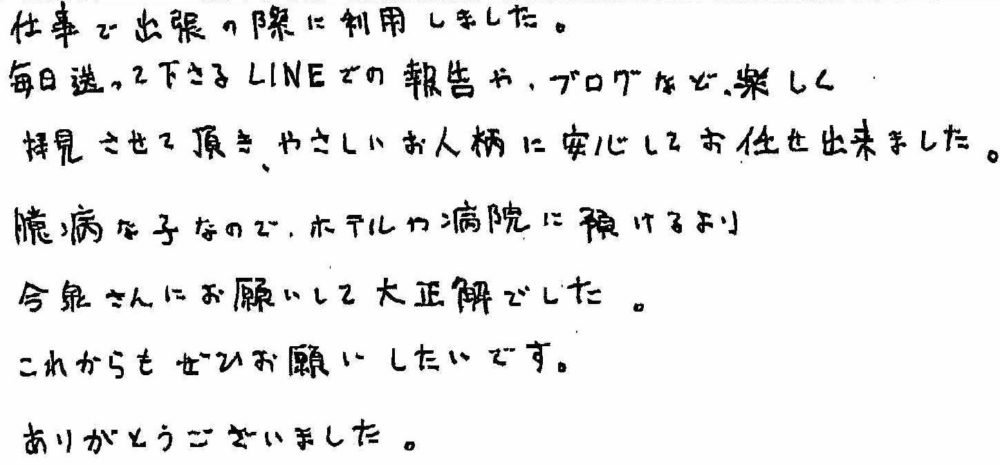 仕事で出張の際に利用しました。
毎日送って下さるLINEでの報告や、ブログなど、楽しく
拝見させて頂き、やさしいお人柄に安心してお任せ出来ました。
臆病な子なので、ホテルや病院に預けるより
今泉さんにお願いして大正解でした。
これからもぜひお願いしたいです。
ありがとうございました。